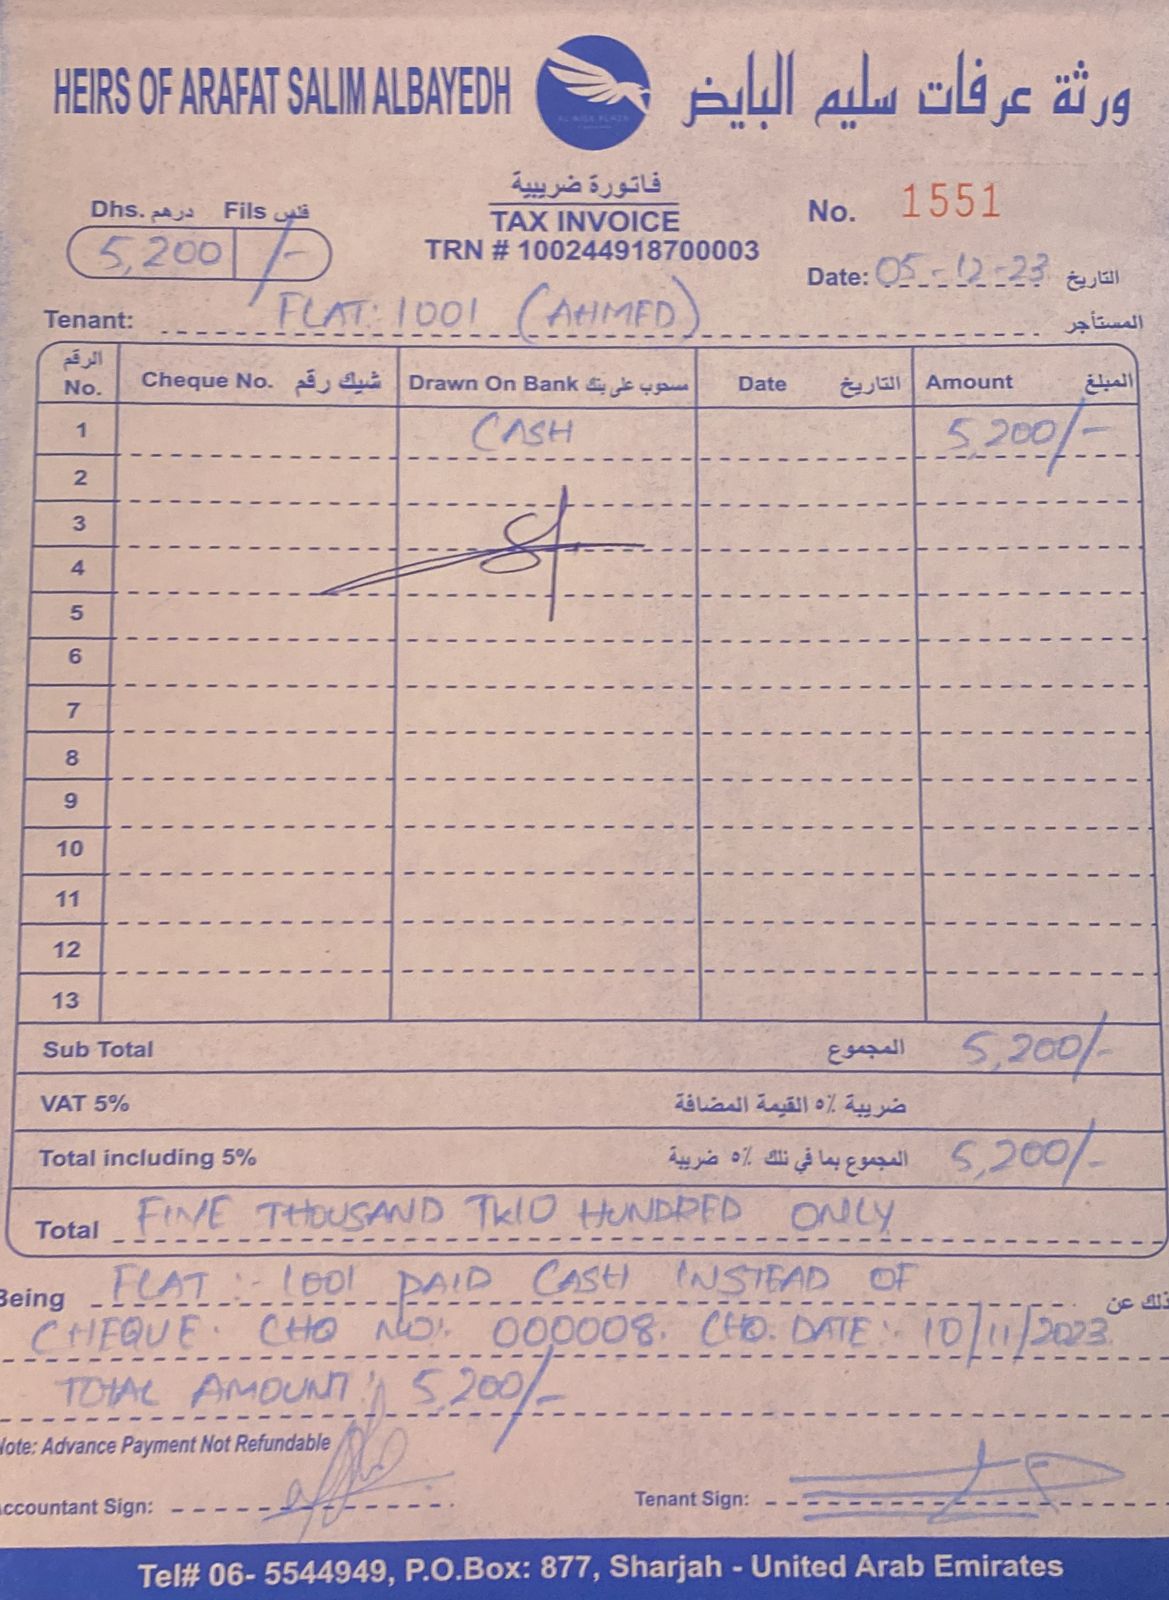 HEIRS OF ARAFAT SALIM ALBAYEDH ورثة عرفات سليم البايض
فاتورة ضريبية
Dhs. درهم Fils فلس
TAX INVOICE
No. 1551
5,200 /-
TRN # 100244918700003
Date: 05-12-23 التاريخ
Tenant: FLAT: 1001 (AHMED) المستأجر
الرقم No. Cheque No. شيك رقم Drawn On Bank مسحوب على بنك Date التاريخ Amount المبلغ
1 CASH 5,200/-
2
3
4
5
6
7
8
9
10
11
12
13
Sub Total المجموع 5,200/-
VAT 5% ضريبة ٥٪ القيمة المضافة
Total including 5% المجموع بما في ذلك ٥٪ ضريبة 5,200/-
Total FIVE THOUSAND TWO HUNDRED ONLY
Being FLAT :- 1001 PAID CASH INSTEAD OF ذلك عن
CHEQUE. CHQ NO:. 000008. CHQ. DATE:- 10/11/2023
TOTAL AMOUNT: 5,200/-
Note: Advance Payment Not Refundable
Accountant Sign: Tenant Sign:
Tel# 06- 5544949, P.O.Box: 877, Sharjah - United Arab Emirates